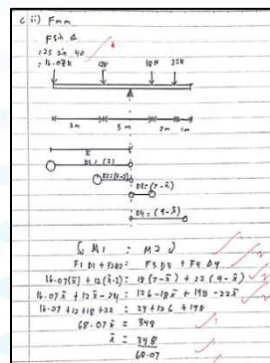 c ii) Fmm
F sin θ
= 25 sin 40
= 16.07N
12N 18N 22N
2m 5m 2m 1m
x̄
D1 = (x̄)
D2 = (x̄-2)
D3 = (7-x̄)
D4 = (9-x̄)
M1 = M2
F1 D1 + F2D2 = F3 D3 + F4 D4
16.07(x̄) + 12(x̄-2) = 18(7-x̄) + 22(9-x̄)
16.07x̄ + 12x̄-24 = 126-18x̄ + 198-22x̄
16.07 + 12+18+22 = 24+126+198
68.07x̄ = 348
x̄ = 348
68.07